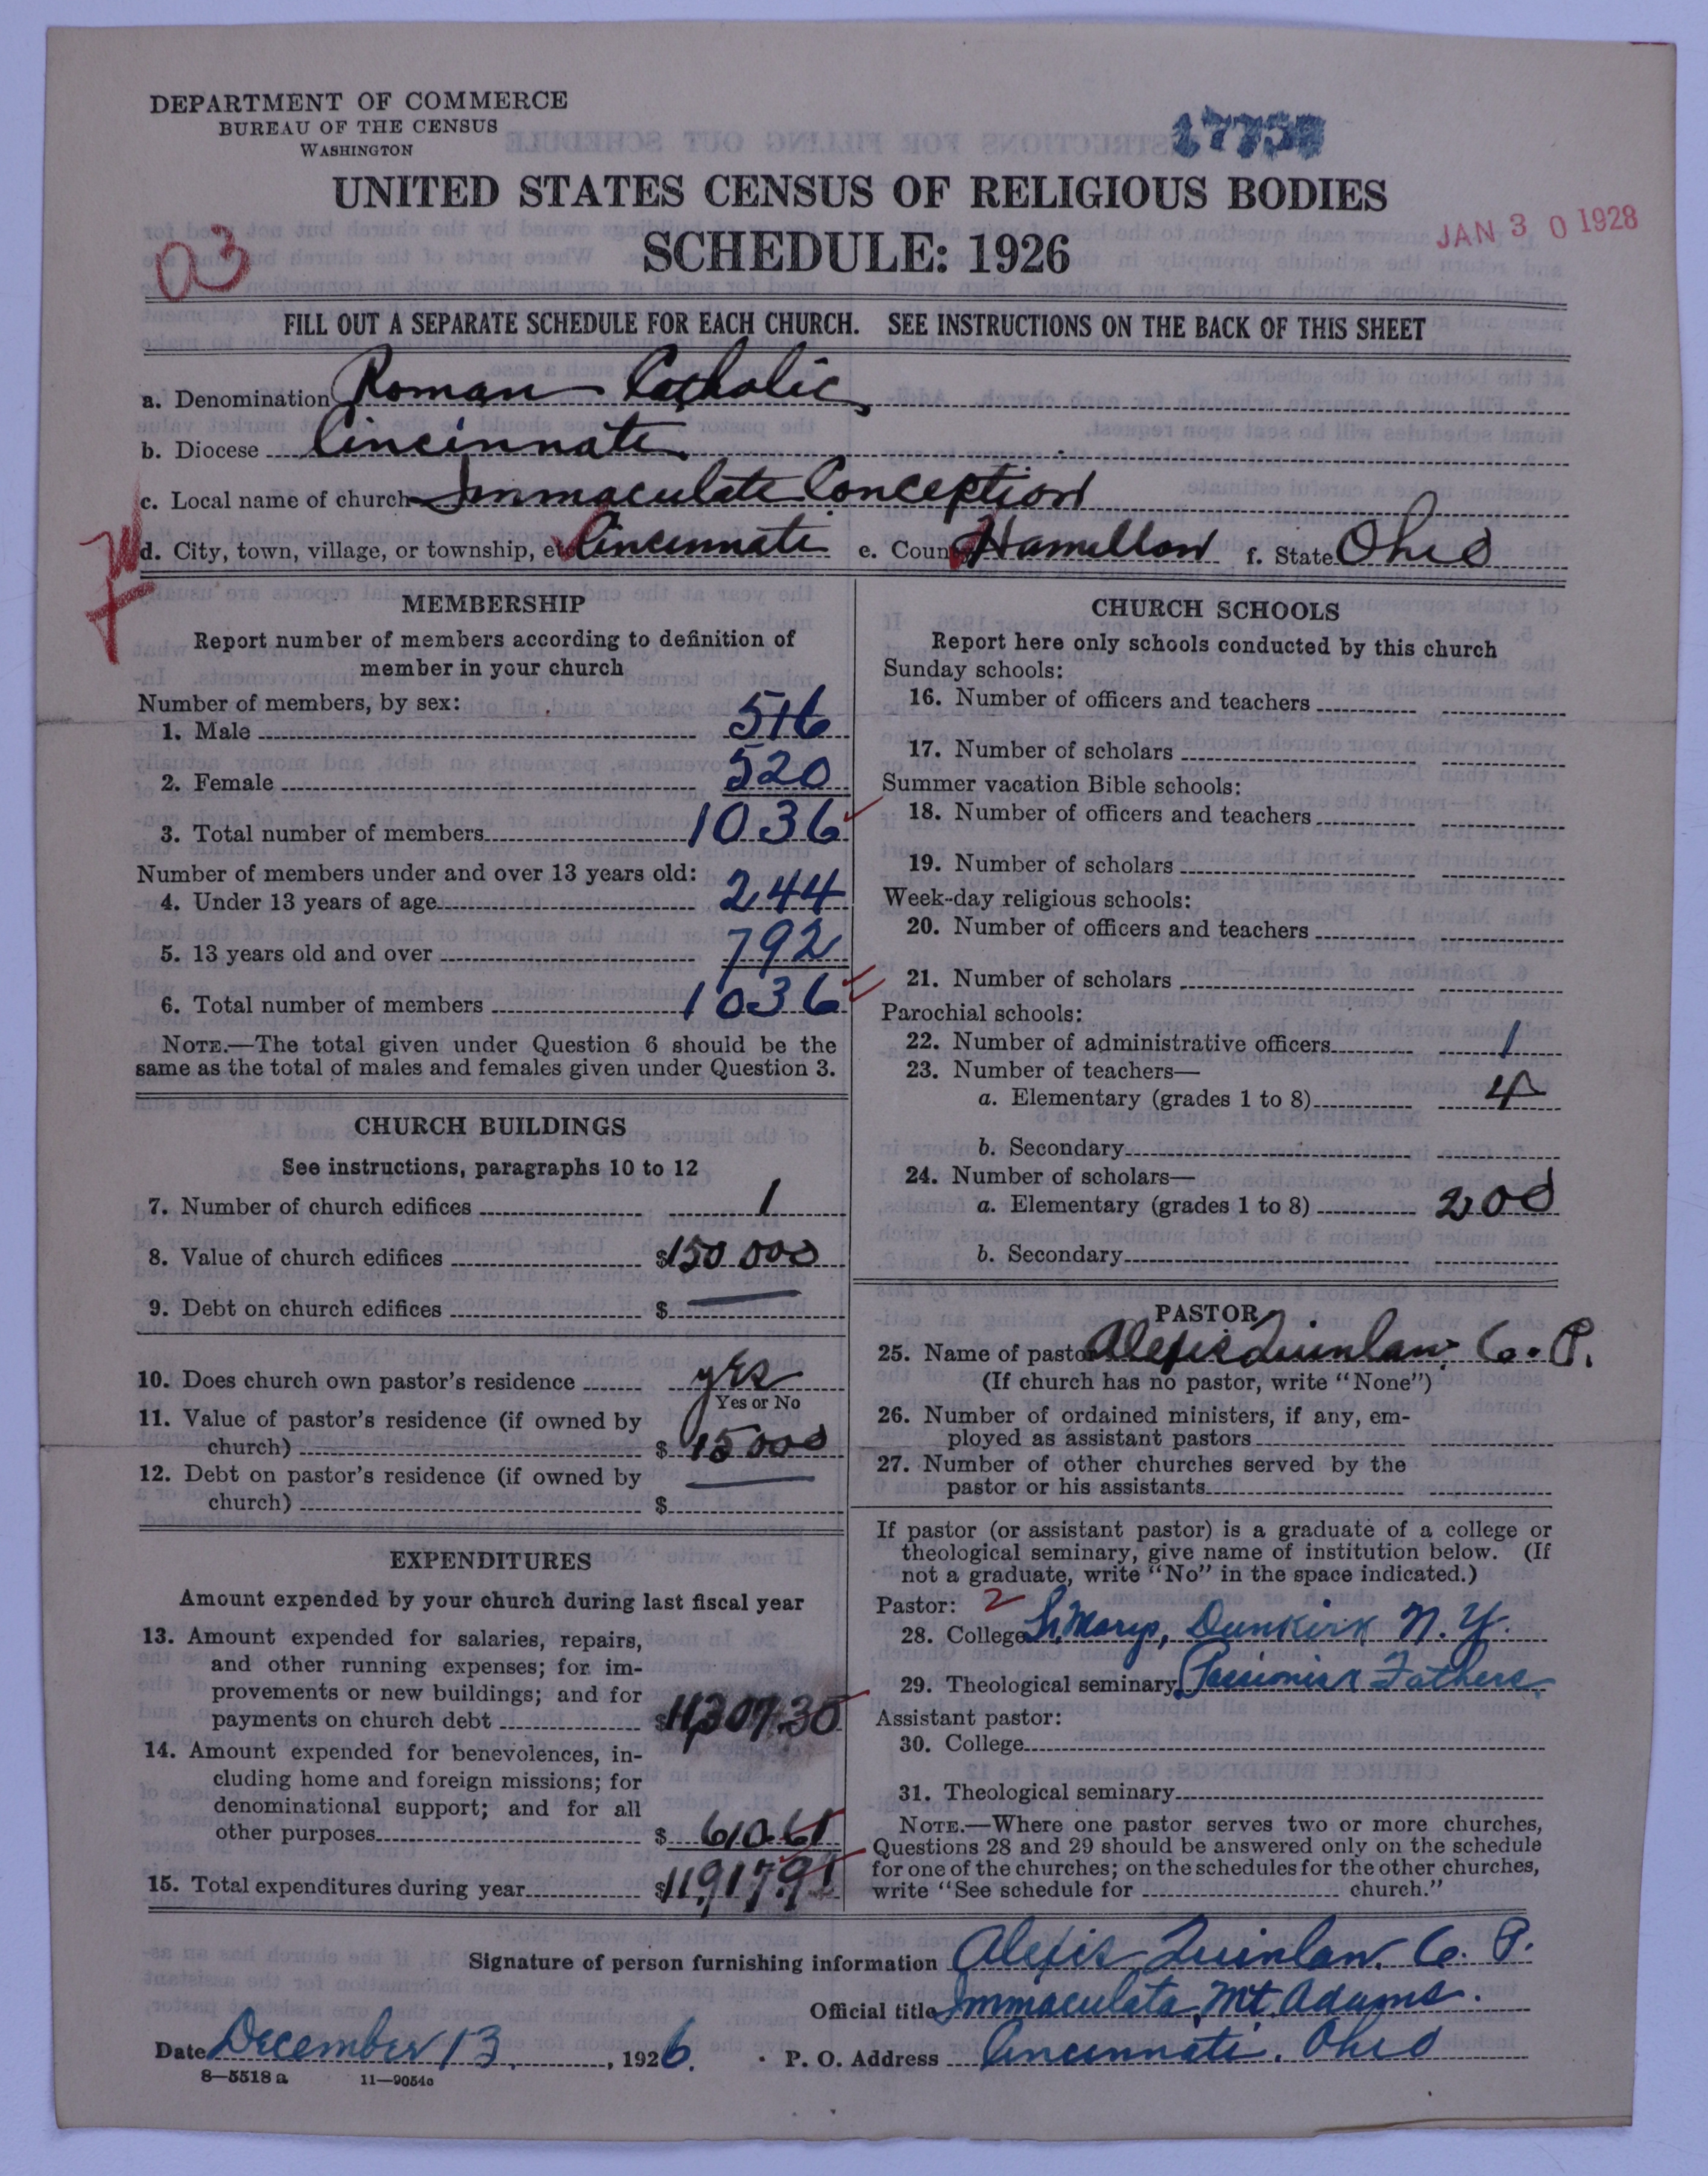 DEPARTMENT OF COMMERCE
BUREAU OF THE CENSUS
WASHINGTON
UNITED STATES CENSUS OF RELIGIOUS BODIES
SCHEDULE: 1926
JAN 30 1928
03
FILL OUT A SEPARATE SCHEDULE FOR EACH CHURCH. SEE INSTRUCTIONS ON THE BACK OF THIS SHEET
a. Denomination Roman Catholic
b. Diocese Cincinnati
c. Local name of church Immaculate Conception
d. City, town, village, or township, etc Cincinnati e. County Hamilton f. State Ohio
MEMBERSHIP
Report number of members according to definition of
member in your church
Number of members, by sex:
1. Male 516
2. Female 520
3. Total number of members 1036
Number of members under and over 13 years old:
4. Under 13 years of age 244
5. 13 years old and over 792
6. Total number of members 1036
NOTE.—The total given under Question 6 should be the
same as the total of males and females given under Question 3.
CHURCH BUILDINGS
See instructions, paragraphs 10 to 12
7. Number of church edifices 1
8. Value of church edifices $150 000
9. Debt on church edifices $ —
10. Does church own pastor's residence yes
Yes or No
11. Value of pastor's residence (if owned by
church) $ 15000
12. Debt on pastor's residence (if owned by
church) $ —
EXPENDITURES
Amount expended by your church during last fiscal year
13. Amount expended for salaries, repairs,
and other running expenses; for im-
provements or new buildings; and for
payments on church debt $11,307.30
14. Amount expended for benevolences, in-
cluding home and foreign missions; for
denominational support; and for all
other purposes $ 610.61
15. Total expenditures during year $11,917.91
CHURCH SCHOOLS
Report here only schools conducted by this church
Sunday schools:
16. Number of officers and teachers
17. Number of scholars
Summer vacation Bible schools:
18. Number of officers and teachers
19. Number of scholars
Week-day religious schools:
20. Number of officers and teachers
21. Number of scholars
Parochial schools:
22. Number of administrative officers 1
23. Number of teachers—
a. Elementary (grades 1 to 8) 4
b. Secondary
24. Number of scholars—
a. Elementary (grades 1 to 8) 200
b. Secondary
PASTOR
25. Name of pastor Alexis Quinlan, C. P.
(If church has no pastor, write "None")
26. Number of ordained ministers, if any, em-
ployed as assistant pastors
27. Number of other churches served by the
pastor or his assistants
If pastor (or assistant pastor) is a graduate of a college or
theological seminary, give name of institution below. (If
not a graduate, write "No" in the space indicated.)
Pastor: 2
28. College St. Marys, Dunkirk N. Y.
29. Theological seminary Passionist Fathers
Assistant pastor:
30. College
31. Theological seminary
NOTE.—Where one pastor serves two or more churches,
Questions 28 and 29 should be answered only on the schedule
for one of the churches; on the schedules for the other churches,
write "See schedule for church."
Signature of person furnishing information Alexis Quinlan. C. P.
Official title Immaculata, Mt. Adams.
Date December 13, 1926. P. O. Address Cincinnati. Ohio
8—5518 a 11—9054c